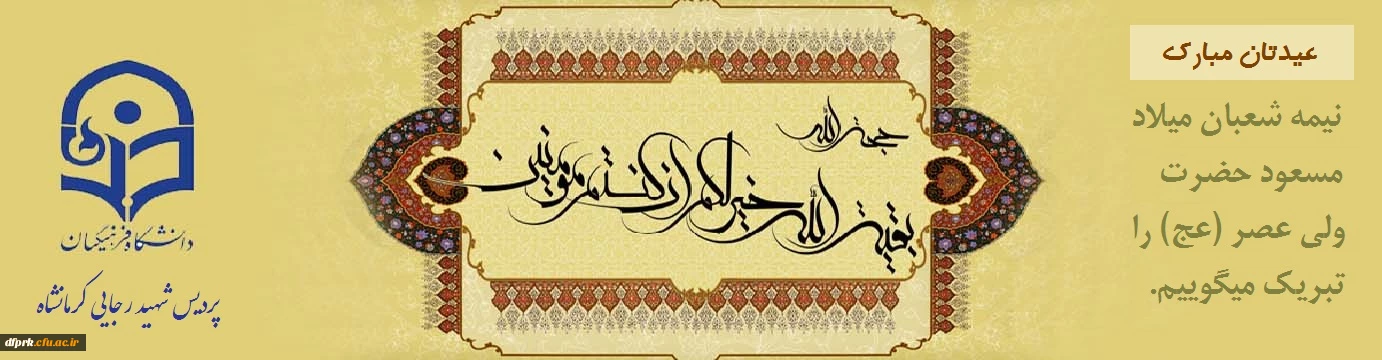 عیدتان مبارک
نیمه شعبان میلاد
مسعود حضرت
ولی عصر (عج) را
تبریک میگوییم.
حجة الله
بقیة الله خیر لکم ان کنتم مومنین
دانشگاه فرهنگیان
پردیس شهید رجایی کرمانشاه
dfprk.cfu.ac.ir